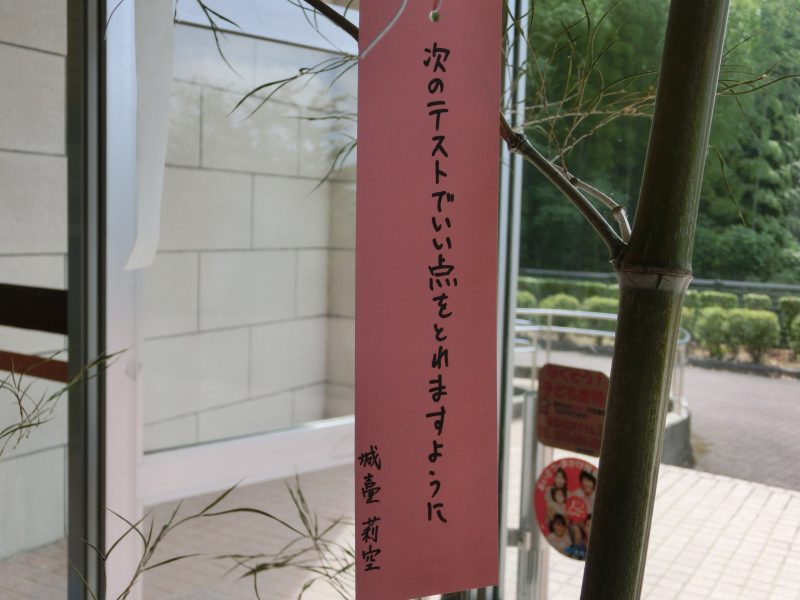 次のテストでいい点をとれますように
城臺 莉空